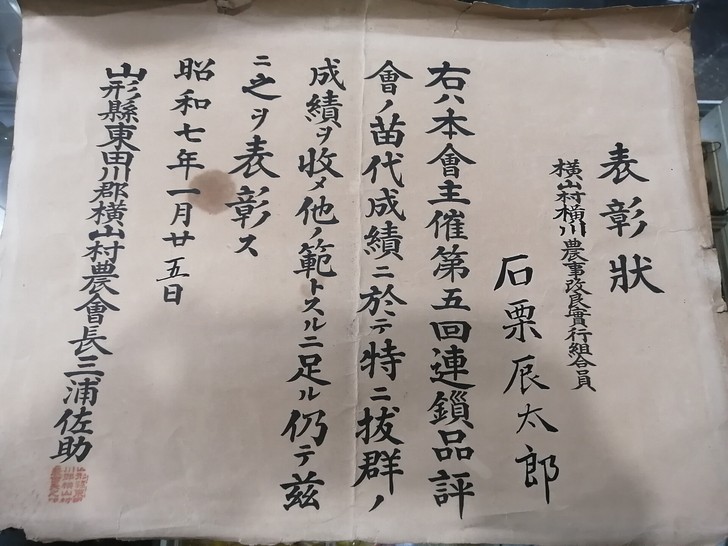 表彰狀
橫山村橫川農事改良實行組合員
石栗辰太郎
右ハ本會主催第五回連鎖品評
會ノ苗代成績ニ於テ特ニ拔群ノ
成績ヲ收メ他ノ範トスルニ足ル仍テ茲
ニ之ヲ表彰ス
昭和七年一月廿五日
山形縣東田川郡橫山村農會長三浦佐助